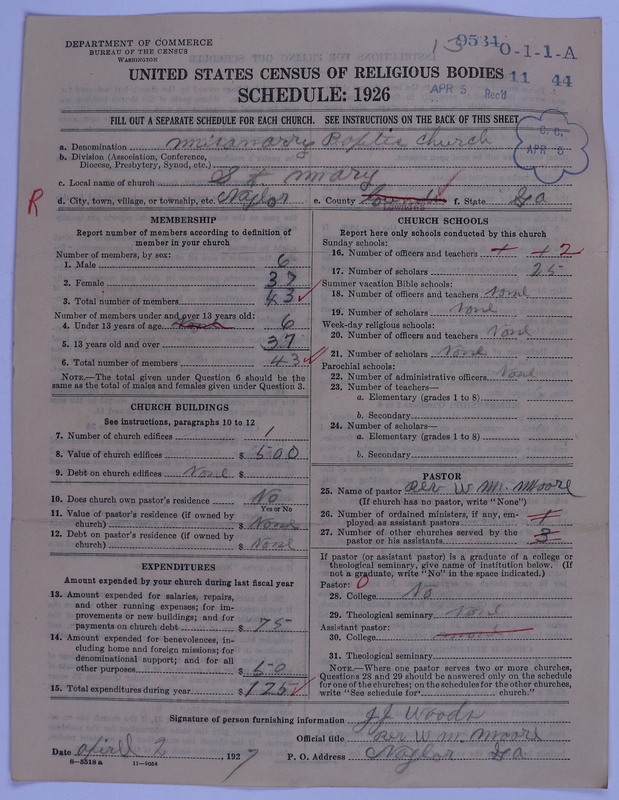 DEPARTMENT OF COMMERCE
BUREAU OF THE CENSUS
WASHINGTON
9534 0-1-1-A
UNITED STATES CENSUS OF RELIGIOUS BODIES 11 44
SCHEDULE: 1926 APR 5 Rec'd
FILL OUT A SEPARATE SCHEDULE FOR EACH CHURCH. SEE INSTRUCTIONS ON THE BACK OF THIS SHEET
C. C.
APR 6
a. Denomination Missionary Baptis Church
b. Division (Association, Conference, Diocese, Presbytery, Synod, etc.)
c. Local name of church St Mary
d. City, town, village, or township, etc. Naylor e. County f. State Ga
R
MEMBERSHIP
Report number of members according to definition of member in your church
Number of members, by sex:
1. Male 6
2. Female 37
3. Total number of members 43
Number of members under and over 13 years old:
4. Under 13 years of age None 6
5. 13 years old and over 37
6. Total number of members 43
NOTE.—The total given under Question 6 should be the same as the total of males and females given under Question 3.
CHURCH BUILDINGS
See instructions, paragraphs 10 to 12
7. Number of church edifices 1
8. Value of church edifices $ 500
9. Debt on church edifices None $
10. Does church own pastor's residence No
Yes or No
11. Value of pastor's residence (if owned by church) $ None
12. Debt on pastor's residence (if owned by church) $ None
EXPENDITURES
Amount expended by your church during last fiscal year
13. Amount expended for salaries, repairs, and other running expenses; for improvements or new buildings; and for payments on church debt $ 75
14. Amount expended for benevolences, including home and foreign missions; for denominational support; and for all other purposes $ 50
15. Total expenditures during year $ 125
CHURCH SCHOOLS
Report here only schools conducted by this church
Sunday schools:
16. Number of officers and teachers 2
17. Number of scholars 25
Summer vacation Bible schools:
18. Number of officers and teachers None
19. Number of scholars None
Week-day religious schools:
20. Number of officers and teachers None
21. Number of scholars None
Parochial schools:
22. Number of administrative officers None
23. Number of teachers—
a. Elementary (grades 1 to 8)
b. Secondary
24. Number of scholars—
a. Elementary (grades 1 to 8)
b. Secondary
PASTOR
25. Name of pastor Rev W M. Moore
(If church has no pastor, write "None")
26. Number of ordained ministers, if any, employed as assistant pastors
27. Number of other churches served by the pastor or his assistants 3
If pastor (or assistant pastor) is a graduate of a college or theological seminary, give name of institution below. (If not a graduate, write "No" in the space indicated.)
Pastor: 0
28. College No
29. Theological seminary None
Assistant pastor:
30. College None
31. Theological seminary
NOTE.—Where one pastor serves two or more churches, Questions 28 and 29 should be answered only on the schedule for one of the churches; on the schedules for the other churches, write "See schedule for church."
Signature of person furnishing information J J Woods
Official title Rev W M. Moore
Date April 2, 1927 P. O. Address Naylor Ga
8-5518 a 11-9054